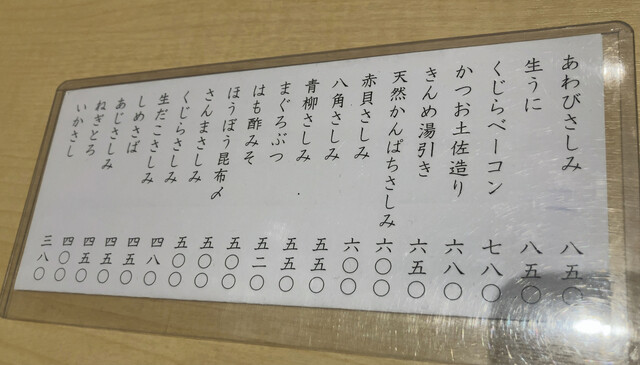 あわびさしみ 八五〇
生うに 八五〇
くじらベーコン 七八〇
かつお土佐造り 六八〇
きんめ湯引き 六五〇
天然かんぱちさしみ 六〇〇
赤貝さしみ 六〇〇
八角さしみ 五五〇
青柳さしみ 五五〇
まぐろぶつ 五二〇
はも酢みそ 五〇〇
ほうぼう昆布〆 五〇〇
さんまさしみ 五〇〇
くじらさしみ 四八〇
生だこさしみ 四五〇
しめさば 四五〇
あじさしみ 四五〇
ねぎとろ 四〇〇
いかさし 三八〇